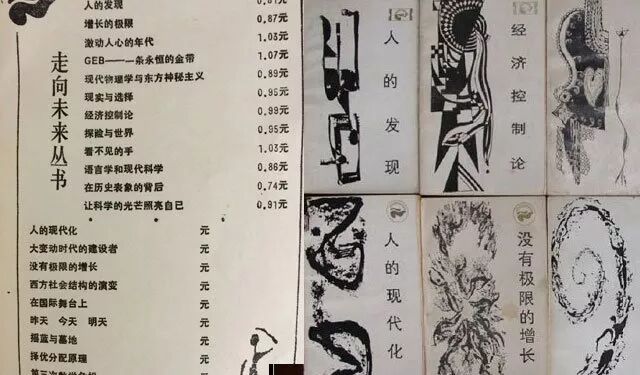 走向未来丛书
人的发现 0.81元
增长的极限 0.87元
激动人心的年代 1.03元
GEB——一条永恒的金带 1.07元
现代物理学与东方神秘主义 0.89元
现实与选择 0.95元
经济控制论 0.99元
探险与世界 0.95元
看不见的手 1.03元
语言学和现代科学 0.86元
在历史表象的背后 0.74元
让科学的光芒照亮自已 0.91元
人的现代化 元
大变动时代的建设者 元
没有极限的增长 元
西方社会结构的演变 元
在国际舞台上 元
昨天 今天 明天 元
摇篮与墓地 元
择优分配原理 元
人的发现
经济控制论
人的现代化
没有极限的增长